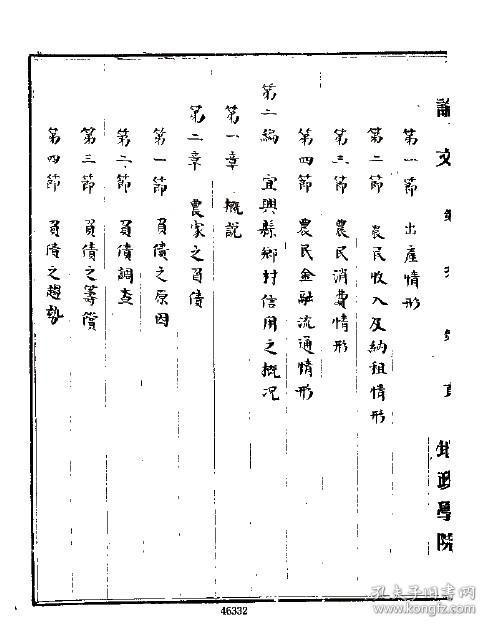 論文
地政學院
第一節 出產情形
第二節 農民收入及納租情形
第三節 農民消費情形
第四節 農民金融流通情形
第二編 宜興縣鄉村信用之概況
第一章 概說
第二章 農家之負債
第一節 負債之原因
第二節 負債調查
第三節 負債之籌償
第四節 負債之趨勢
46332
孔夫子旧书网
www.kongfz.com